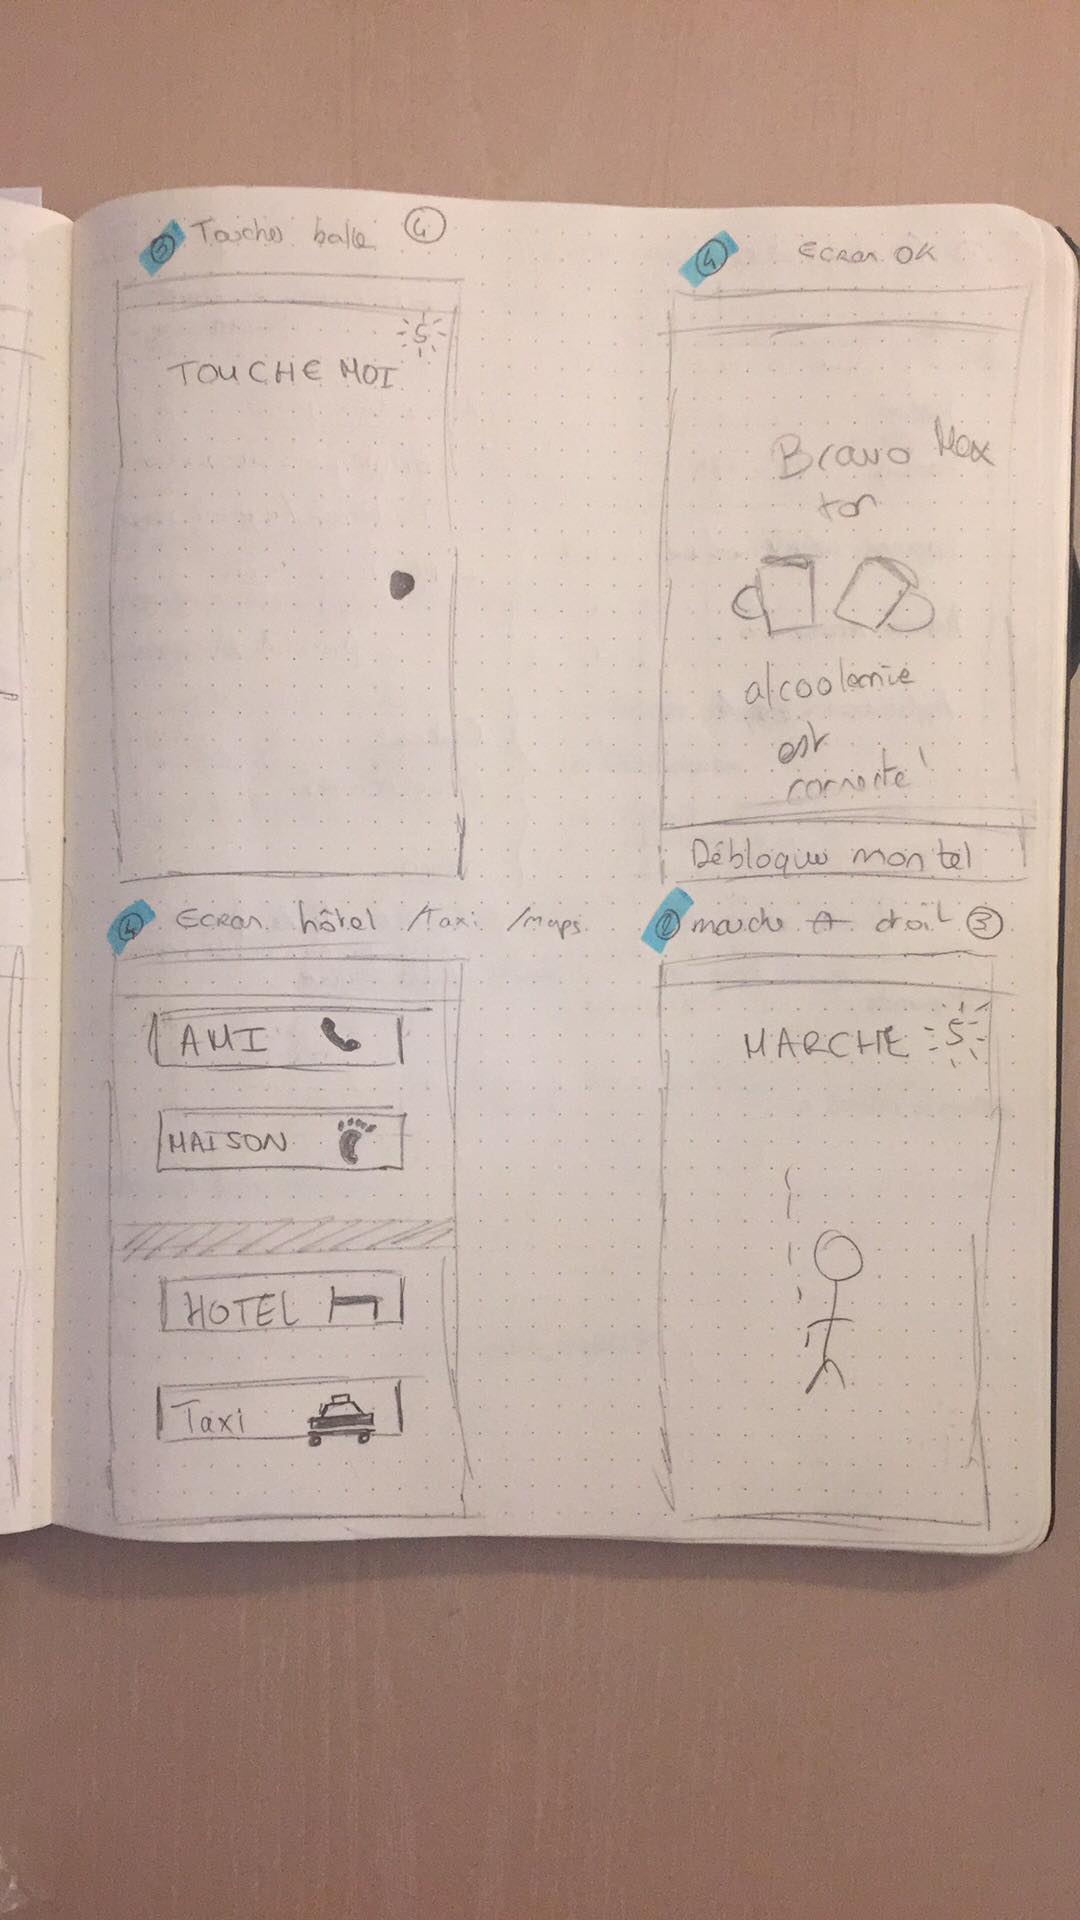 3 Toucher balle 4
5
TOUCHE MOI
4 Ecran OK
Bravo Max
ton
alcoolémie
est
correcte !
Débloquer mon tel
4 Ecran hôtel /Taxi /maps
AMI
MAISON
HOTEL
Taxi
2 marche droit 3
MARCHE 5